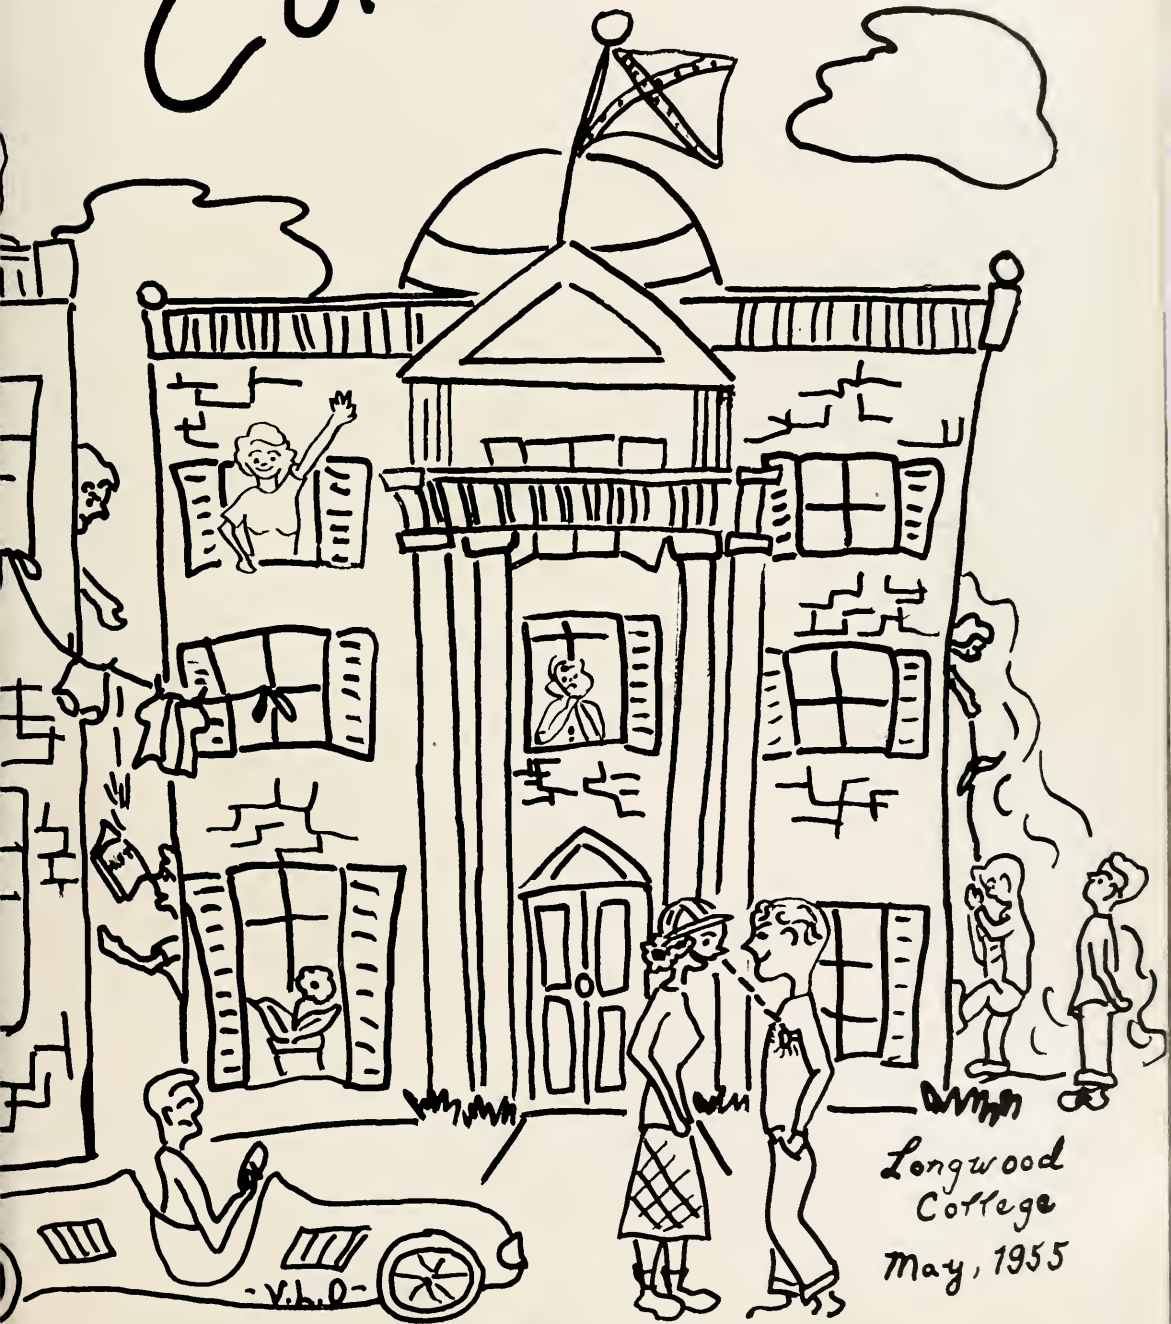 Longwood
College
May, 1955
-V.h.D-